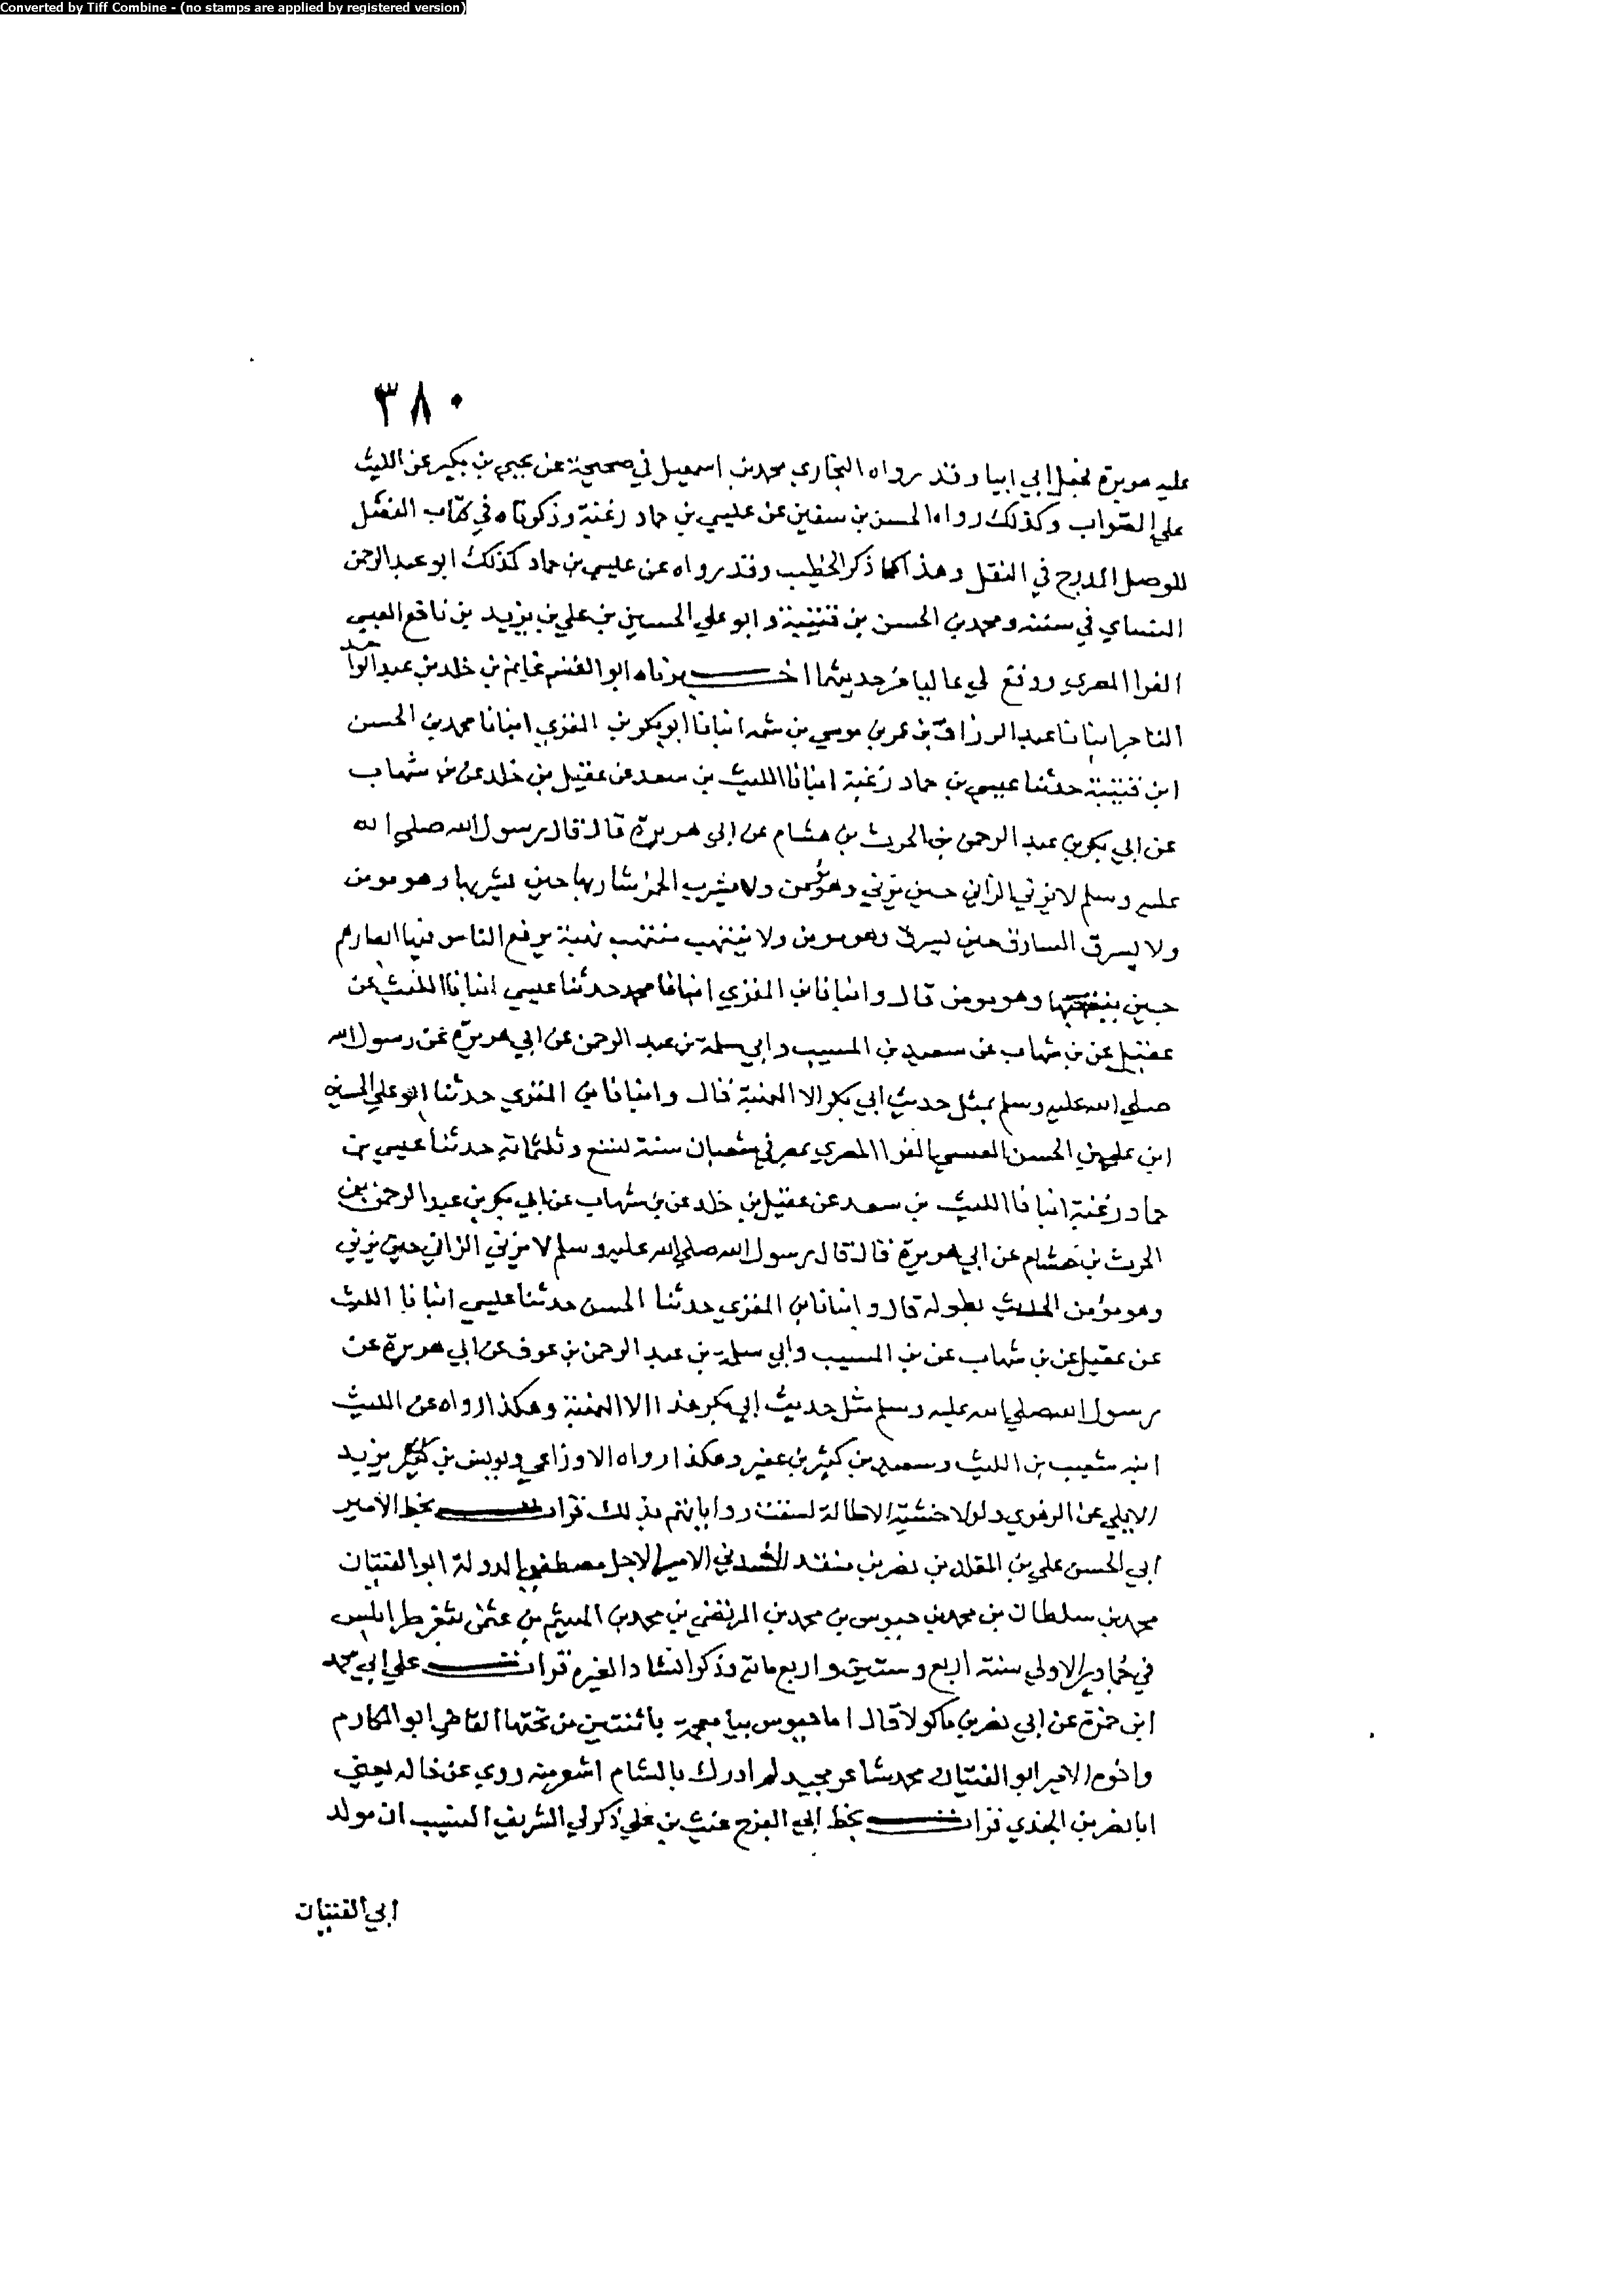 Converted by Tiff Combine - (no stamps are applied by registered version)
٣٨٠
عليه هويرة فجعل ابي ابيا وقد رواه البخاري محمد بن اسمعيل في صحيحة عن يحيى بن بكير عن الليث
علي الصواب وكذلك رواه الحسن بن سفين عن عليسي بن حماد زغبة وذكرناه في كتاب الفصل
للوصل المدرج في النقل وهذا كما ذكر الخطيب وقد رواه عن عليسي بن حماد كذلك ابو عبد الرحمن
النساي في سننه ومحمد بن الحسن بن قتيبة وابو علي الحسين بن علي بن يزيد بن نافع العبسي
الفرا المصري ووقع لي عاليا من حديثهما اخبرناه ابو القسم غانم بن خلد بن عبد الواحد
التاجر انبانا عبد الرزاق بن عمر بن موسي بن شمه انبانا ابو بكر بن المقري انبانا محمد بن الحسن
ابن قتيبة حدثنا عيسي بن حماد زغبة انبانا الليث بن سعد عن عقيل بن خلد عن بن شهاب
عن ابي بكر بن عبد الرحمن بن الحرث بن هشام عن ابي هريرة قال قال رسول الله صلي الله
عليه وسلم لا يزني الزاني حين يزني وهو مؤمن ولا يشرب الخمر شاربها حين يشربها وهو مومن
ولا يسرق السارق حين يسرق وهو مومن ولا ينتهب منتهب نهبة يرفع الناس فيها ابصارهم
حين ينتهبها وهو مومن قال وانبانا بن المقري انبانا محمد حدثنا عيسي انبانا الليث عن
عقيل عن بن شهاب عن سعيد بن المسيب وابي سلمة بن عبد الرحمن عن ابي هريرة عن رسول الله
صلي الله عليه وسلم بمثل حديث ابي بكر الا النهبة قال وانبانا بن المقري حدثنا ابو علي الحسين
ابن علي بن الحسن العبسي الفرا المصري بمصر في شعبان سنة تسع وثلثماية حدثنا عيسي بن
حماد زغبة انبانا الليث بن سعد عن عقيل بن خلد عن بن شهاب عن ابي بكر بن عبد الرحمن بن
الحرث بن هشام عن ابي هريرة قال قال رسول الله صلي الله عليه وسلم لا يزني الزاني حين يزني
وهو مؤمن الحديث بطوله قال وانبانا بن المقري حدثنا الحسن حدثنا عليسي انبانا الليث
عن عقيل عن بن شهاب عن بن المسيب وابي سلمة بن عبد الرحمن بن عوف عن ابي هريرة عن
رسول الله صلي الله عليه وسلم مثل حديث ابي بكر هذا الا النهبة وهكذا رواه عن الليث
ابنه شعيب بن الليث وسعيد بن كثير بن عفير وهكذا رواه الاوزاعي ويونس بن يزيد
الايلي عن الزهري ولولا خشية الاطالة لسقت رواياتهم بذلك قرات بخط الامير
ابي الحسن علي بن المقلد بن نصر بن منقد انشدني الامير الاجل مصطفي الدولة ابو الفتيان
محمد بن سلطان بن محمد بن حيوس بن محمد بن المرتضي بن محمد بن الهيثم بن عثمن بثغر طرابلس
في جمادي الاولي سنة اربع وستين واربع ماية وذكر انشادا لغيره قرات علي ابي محمد
ابن حمزة عن ابي نصر بن ماكولا قال اما حيوس بيا معجمة باثنتين من تحتها القاضي ابو المكارم
واخوه الامير ابو الفتيان محمد شاعر مجيد لم ادرك بالشام اشعر منه روي عن خاله يعني
ابا نصر بن الجندي قرات بخط ابي الفرج غيث بن علي ذكر لي الشريف النسيب ان مولد
ابي الفتيان